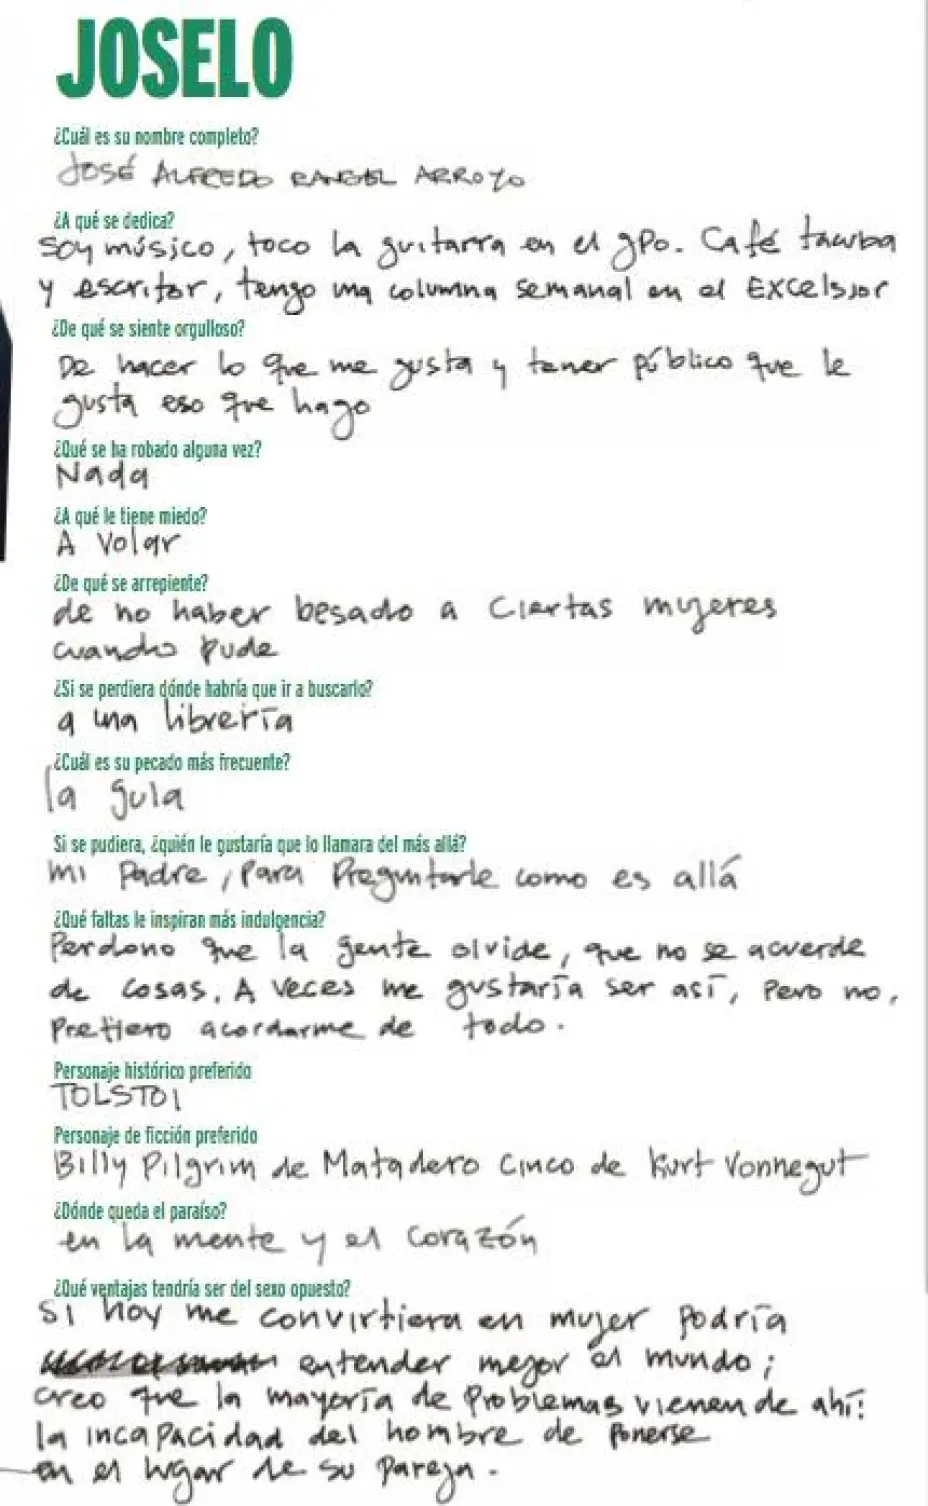 JOSELO
¿Cuál es su nombre completo?
JOSÉ ALFREDO RANGEL ARROYO
¿A qué se dedica?
Soy músico, toco la guitarra en el gpo. Café tacuba
y escritor, tengo una columna semanal en el Excelsior
¿De qué se siente orgulloso?
De hacer lo que me gusta y tener público que le
gusta eso que hago
¿Qué se ha robado alguna vez?
Nada
¿A qué le tiene miedo?
A volar
¿De qué se arrepiente?
de no haber besado a ciertas mujeres
cuando pude
¿Si se perdiera dónde habría que ir a buscarlo?
a una librería
¿Cuál es su pecado más frecuente?
la gula
Si se pudiera, ¿quién le gustaría que lo llamara del más allá?
mi padre, para preguntarle como es allá
¿Qué faltas le inspiran más indulgencia?
Perdono que la gente olvide, que no se acuerde
de cosas. A veces me gustaría ser así, pero no,
prefiero acordarme de todo.
Personaje histórico preferido
TOLSTOI
Personaje de ficción preferido
Billy Pilgrim de Matadero Cinco de Kurt Vonnegut
¿Dónde queda el paraíso?
en la mente y el corazón
¿Qué ventajas tendría ser del sexo opuesto?
Si hoy me convirtiera en mujer podría
entender mejor el mundo;
creo que la mayoría de problemas vienen de ahí:
la incapacidad del hombre de ponerse
en el lugar de su pareja.